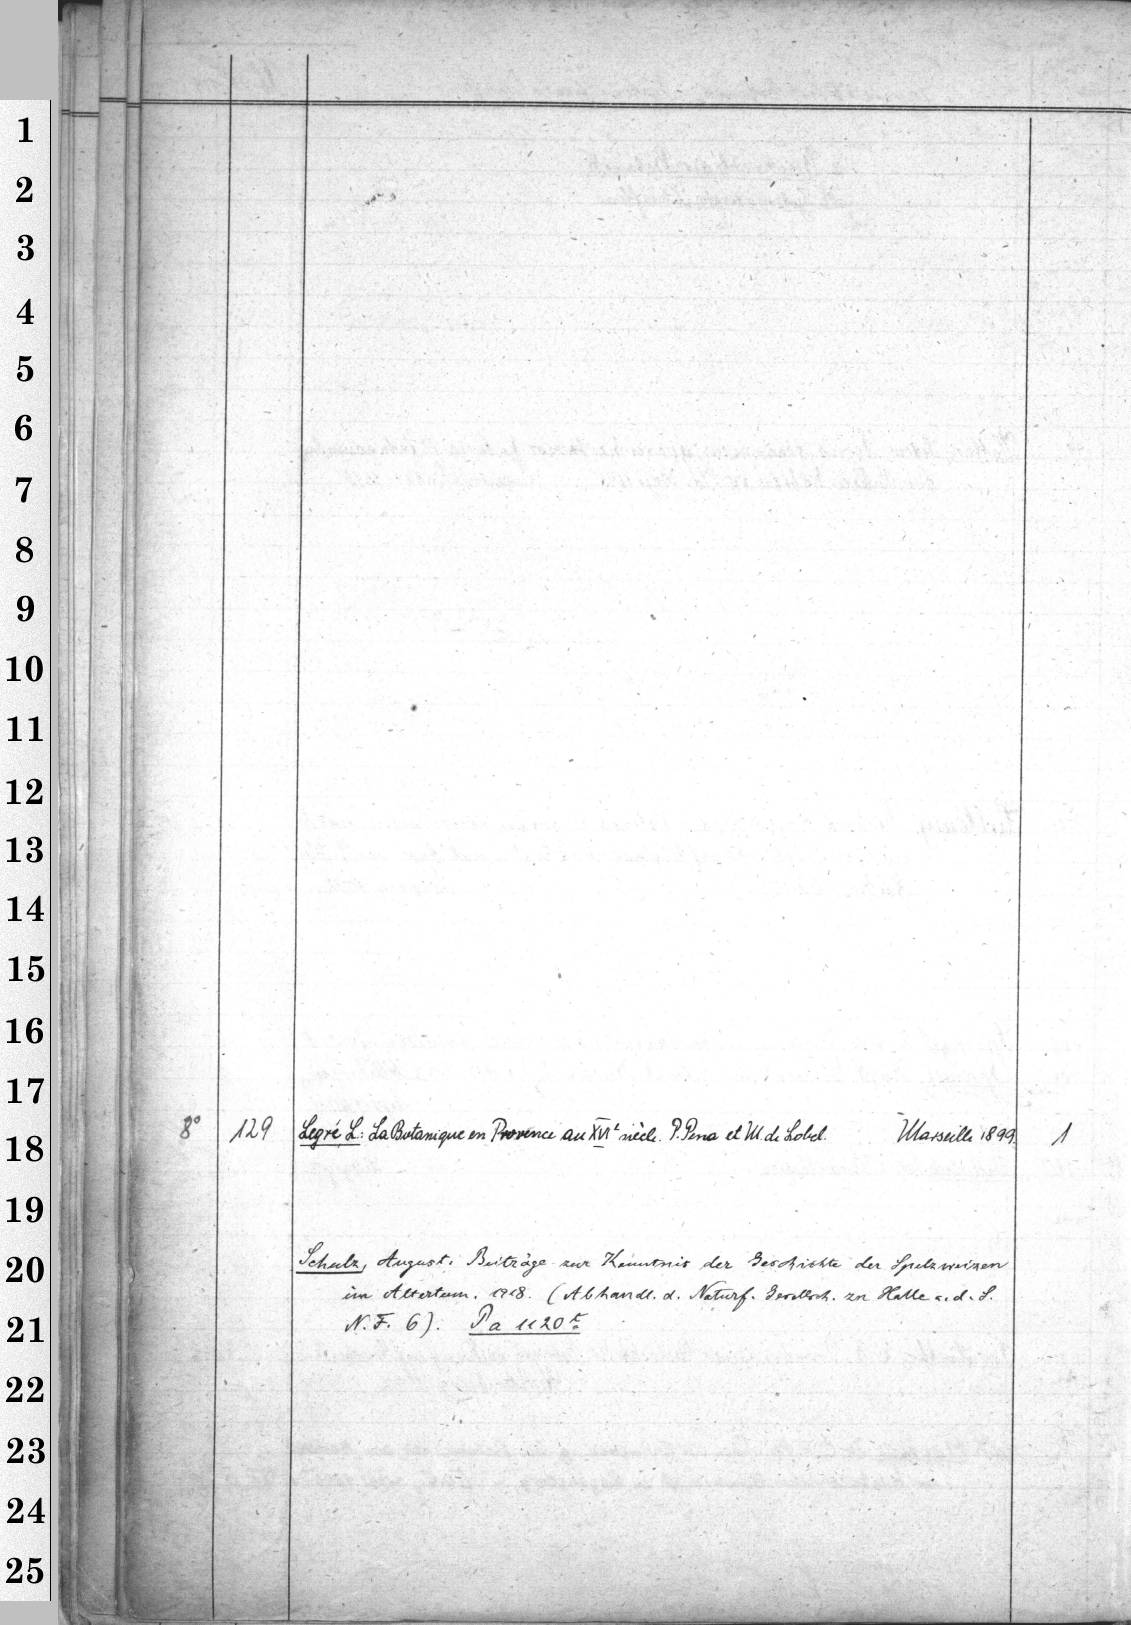 1
2
3
4
5
6
7
8
9
10
11
12
13
14
15
16
17
8° 129 Legré, L: La Botanique en Provence au XVIe siècle. P. Pena et M. de Lobel. Marseille 1899. 1
18
19
Schulz, August. Beiträge zur Kenntnis der Geschichte der Spelzweizen
20
im Altertum. 1918. (Abhandl. d. Naturf. Gesellsch. zu Halle a. d. S.
N. F. 6). Pa 1120 r
21
22
23
24
25